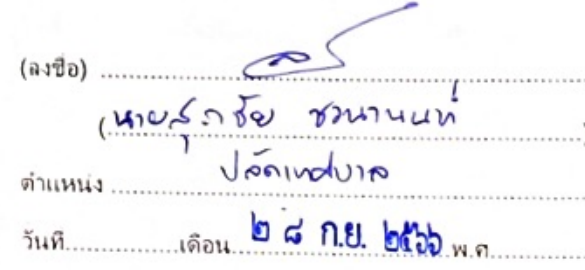 (ลงชื่อ)
(นายสุภชัย ชวนานนท์
ตำแหน่ง ปลัดเทศบาล
วันที่ เดือน ๒๘ ก.ย. ๒๕๖๖ พ.ศ.